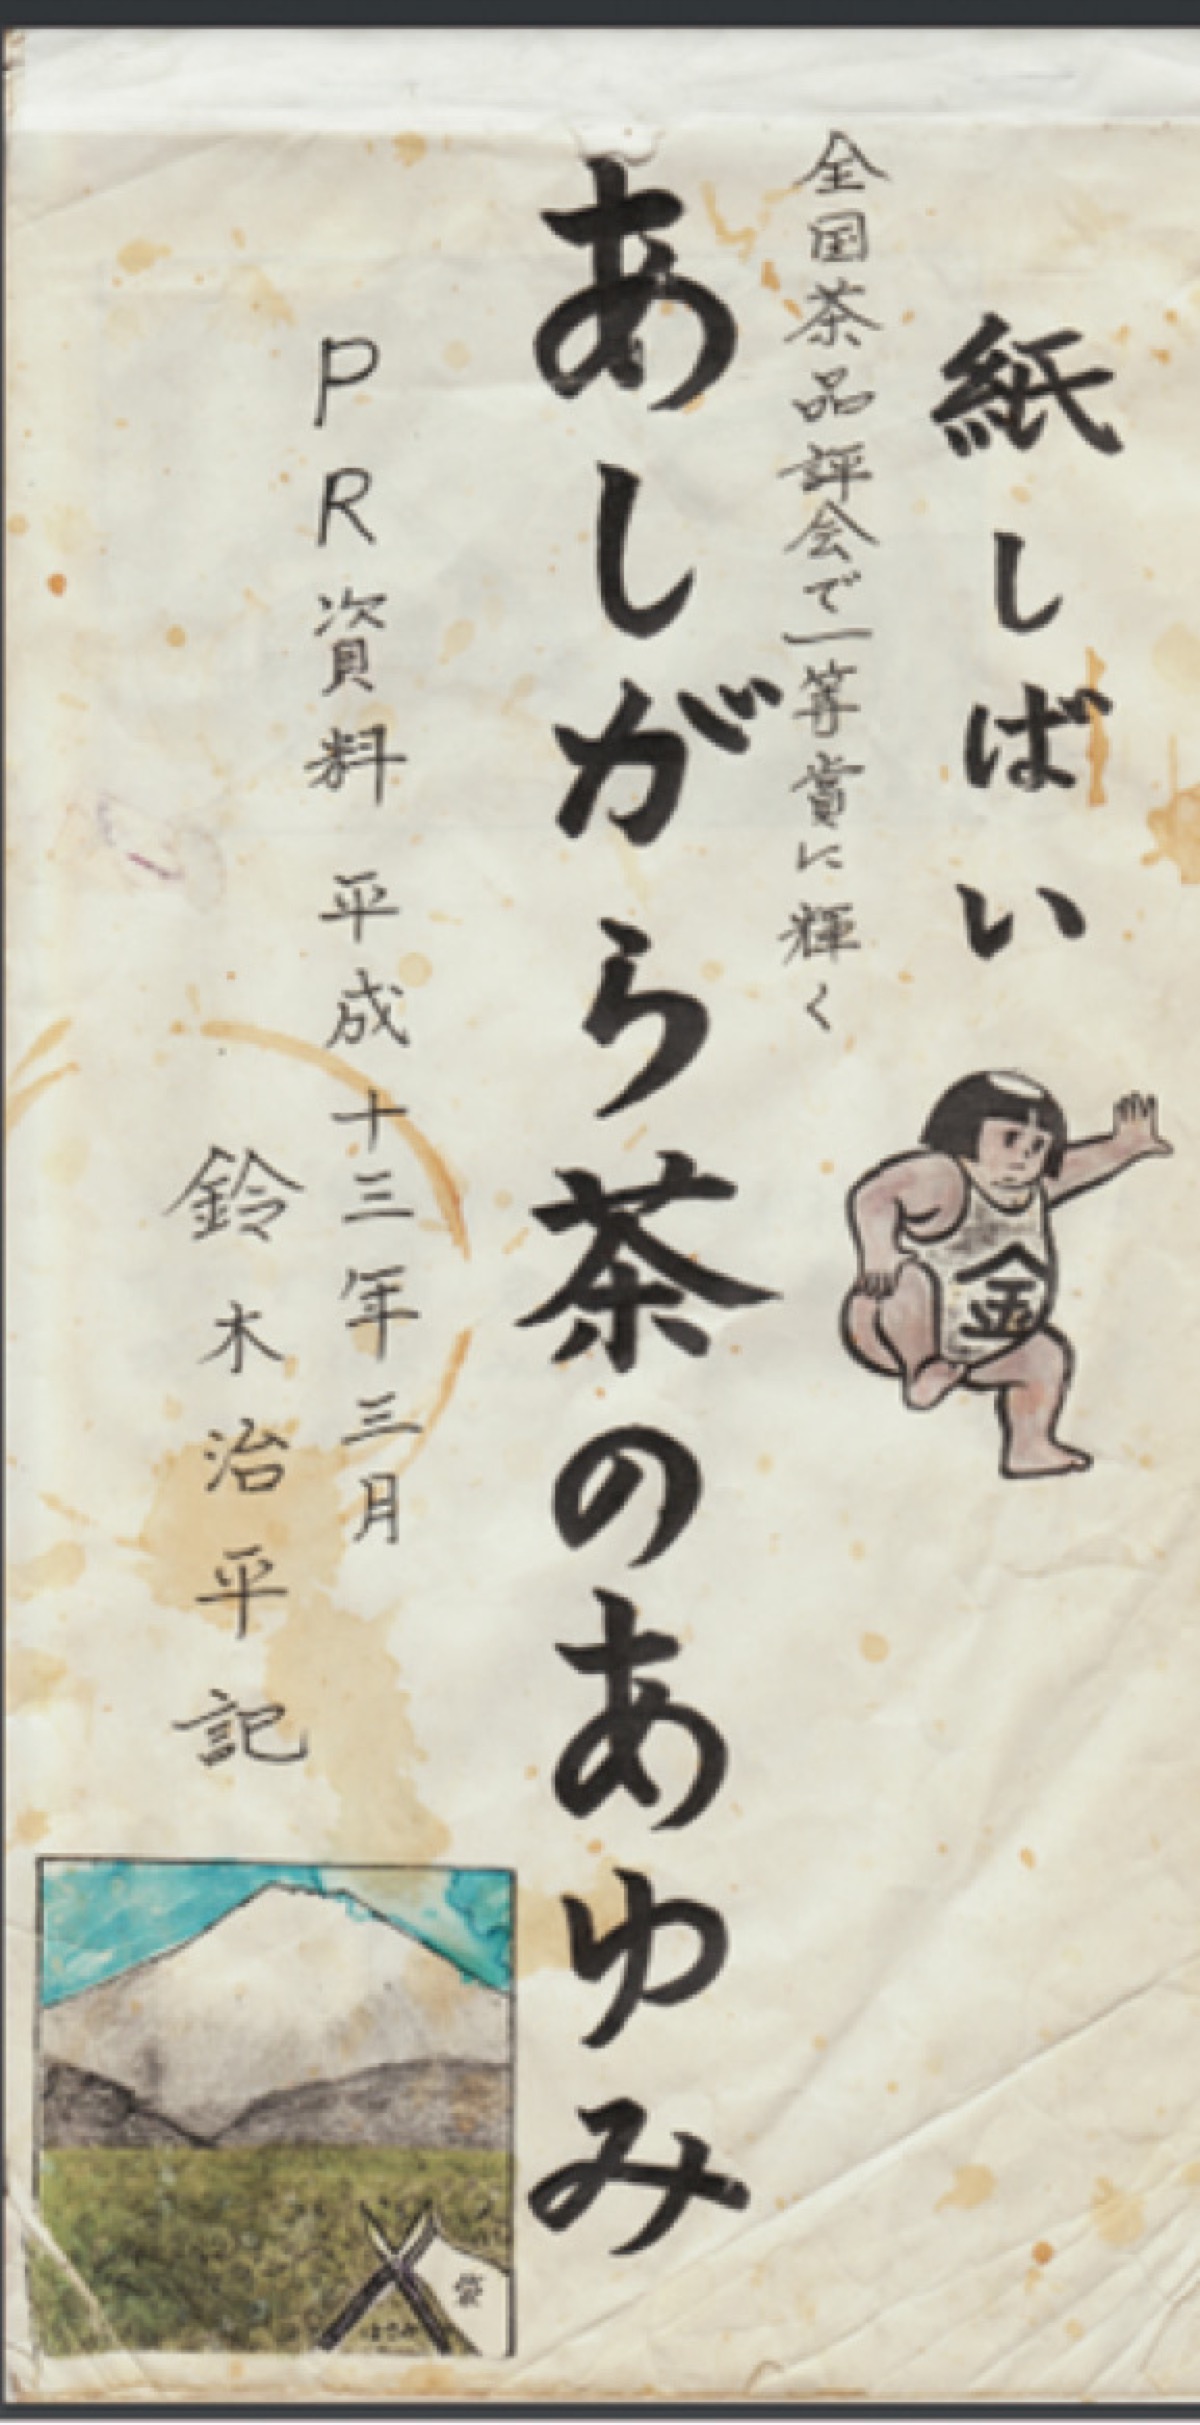 紙しばい
全国茶品評会で一等賞に輝く
あしがら茶のあゆみ
PR資料 平成十三年三月
鈴木治平記
金
袋
はさみ